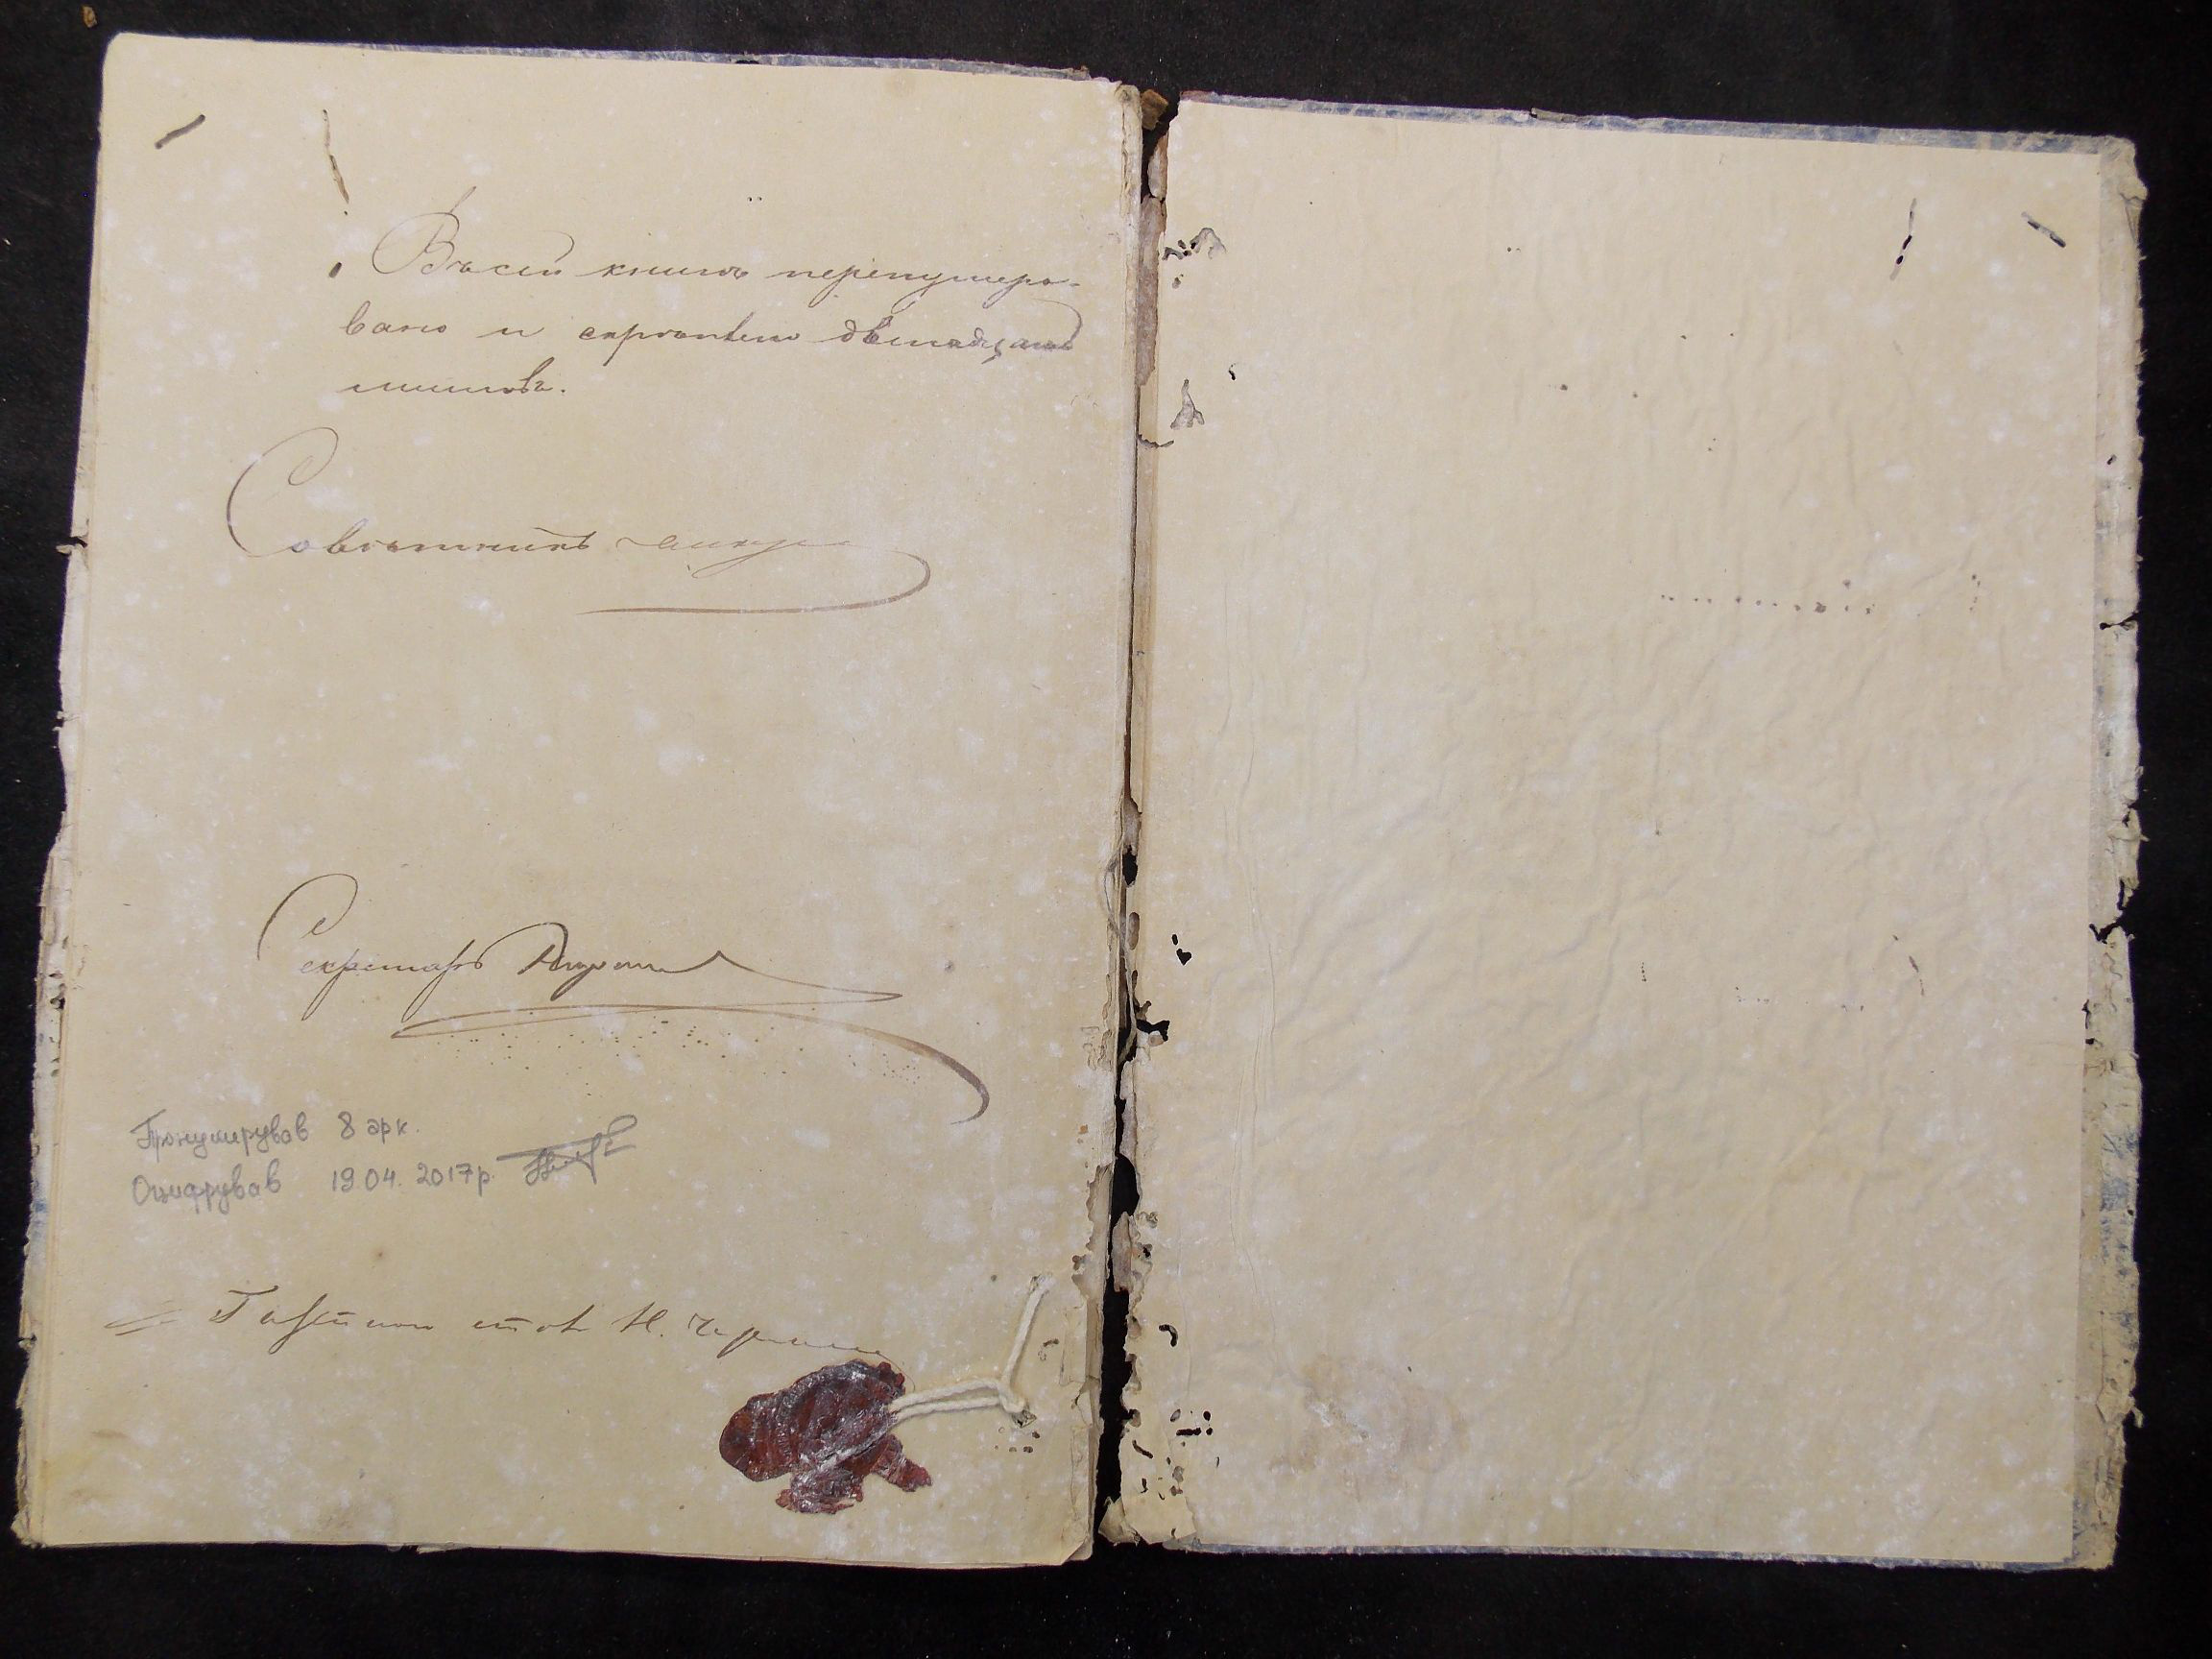 Въ сей книгѣ перенумеро-
вано и скрѣплено двенадцать
листовъ.
Совѣтникъ
Секретарь
Пронумерував 8 арк.
Оцифрував 19.04.2017р.